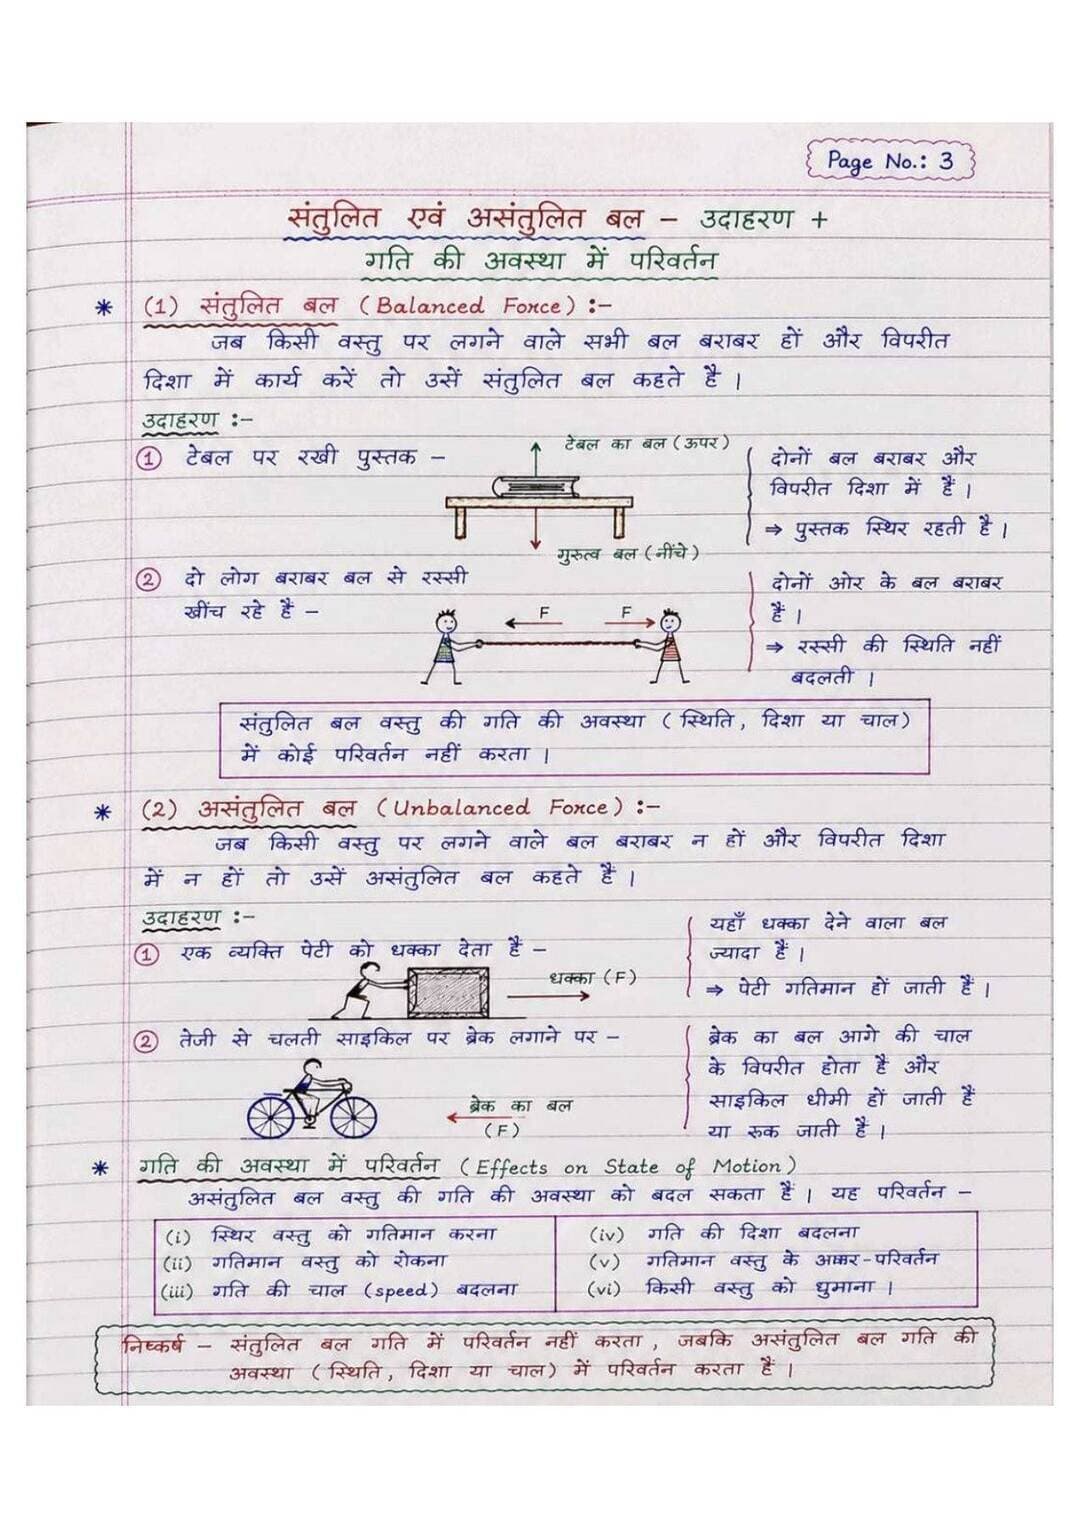 Page No.: 3
संतुलित एवं असंतुलित बल – उदाहरण +
गति की अवस्था में परिवर्तन
* (1) संतुलित बल (Balanced Force) :-
जब किसी वस्तु पर लगने वाले सभी बल बराबर हों और विपरीत
दिशा में कार्य करें तो उसें संतुलित बल कहते है ।
उदाहरण :-
① टेबल पर रखी पुस्तक –
टेबल का बल (ऊपर)
गुरुत्व बल (नींचे)
दोनों बल बराबर और
विपरीत दिशा में हैं ।
⇒ पुस्तक स्थिर रहती है ।
② दो लोग बराबर बल से रस्सी
खींच रहे है –
F F
दोनों ओर के बल बराबर
हैं ।
⇒ रस्सी की स्थिति नहीं
बदलती ।
संतुलित बल वस्तु की गति की अवस्था (स्थिति, दिशा या चाल)
में कोई परिवर्तन नहीं करता ।
* (2) असंतुलित बल (Unbalanced Force) :-
जब किसी वस्तु पर लगने वाले बल बराबर न हों और विपरीत दिशा
में न हों तो उसें असंतुलित बल कहते हैं ।
उदाहरण :-
① एक व्यक्ति पेटी को धक्का देता है –
धक्का (F)
यहाँ धक्का देने वाला बल
ज्यादा है ।
⇒ पेटी गतिमान हों जाती हैं ।
② तेजी से चलती साइकिल पर ब्रेक लगाने पर –
ब्रेक का बल
(F)
ब्रेक का बल आगे की चाल
के विपरीत होता है और
साइकिल धीमी हों जाती हैं
या रुक जाती हैं ।
* गति की अवस्था में परिवर्तन (Effects on State of Motion)
असंतुलित बल वस्तु की गति की अवस्था को बदल सकता हैं । यह परिवर्तन –
(i) स्थिर वस्तु को गतिमान करना
(ii) गतिमान वस्तु को रोकना
(iii) गति की चाल (speed) बदलना
(iv) गति की दिशा बदलना
(v) गतिमान वस्तु के परिवर्तन
(vi) किसी वस्तु को घुमाना ।
निष्कर्ष – संतुलित बल गति में परिवर्तन नहीं करता, जबकि असंतुलित बल गति की
अवस्था (स्थिति, दिशा या चाल) में परिवर्तन करता हैं ।